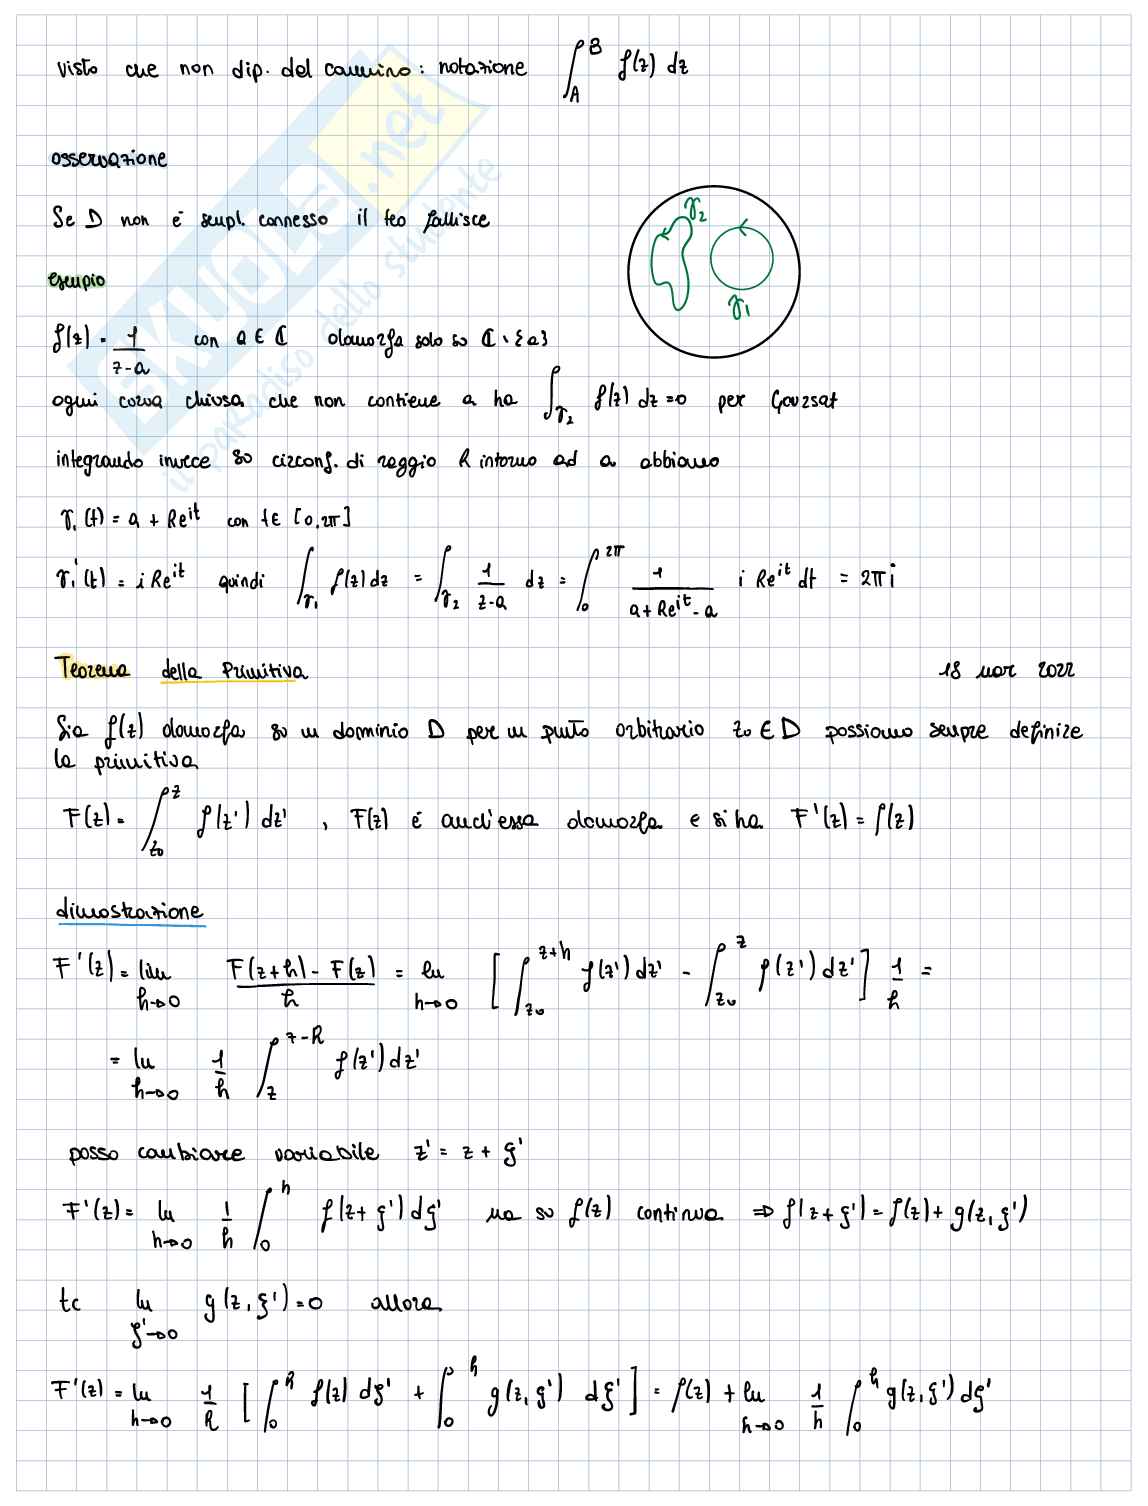 visto che non dip. del cammino: notazione ∫_A^B f(z) dz
osservazione
Se D non è sempl. connesso il teo fallisce
esempio
γ₂
γ₁
f(z) = 1/(z-a) con a ∈ ℂ olomorfa solo so ℂ∖{a}
ogni curva chiusa che non contiene a ha ∫_γ₂ f(z) dz = 0 per Gourzat
integrando invece so circonf. di raggio R intorno ad a abbiamo
γ₁(t) = a + Re^{it} con t ∈ [0,2π]
γ₁'(t) = i Re^{it} quindi ∫_γ₁ f(z) dz = ∫_γ₂ 1/(z-a) dz = ∫_0^{2π} 1/(a+Re^{it}-a) i Re^{it} dt = 2πi
Teorema della Primitiva 18 mar 2022
Sia f(z) olomorfa so un dominio D per un punto arbitrario z₀ ∈ D possiamo sempre definire
la primitiva
F(z) = ∫_{z₀}^z f(z') dz' , F(z) è anch'essa olomorfa e si ha F'(z) = f(z)
dimostrazione
F'(z) = lim_{h→0} (F(z+h) - F(z))/h = lim_{h→0} [∫_{z₀}^{z+h} f(z') dz' - ∫_{z₀}^z f(z') dz'] 1/h =
= lim_{h→0} 1/h ∫_z^{z-h} f(z') dz'
posso cambiare variabile z' = z + ξ'
F'(z) = lim_{h→0} 1/h ∫_0^h f(z+ξ') dξ' ma so f(z) continua ⇒ f(z+ξ') = f(z) + g(z,ξ')
tc lim_{ξ'→0} g(z,ξ') = 0 allora
F'(z) = lim_{h→0} 1/h [∫_0^h f(z) dξ' + ∫_0^h g(z,ξ') dξ'] = f(z) + lim_{h→0} 1/h ∫_0^h g(z,ξ') dξ'
SKUOLA.net
il paradiso dello studente